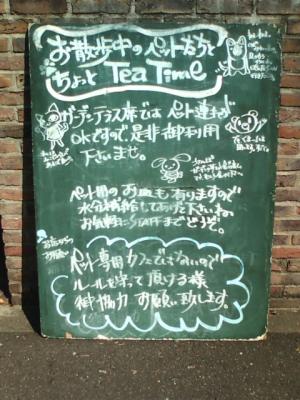 お散歩中のペット友だちと
ちょっと Tea Time
ガーデンテラス席では ペット連れが
OKですので、是非 御利用
下さいませ。
ペット用の お皿も有りますので
水分補給してあげて下さいね
お気軽にSTAFFまでどうぞ。
お店からの
お願い
ペット専用カフェではないので
ルールを守って頂ける様
御協力 お願い致します。